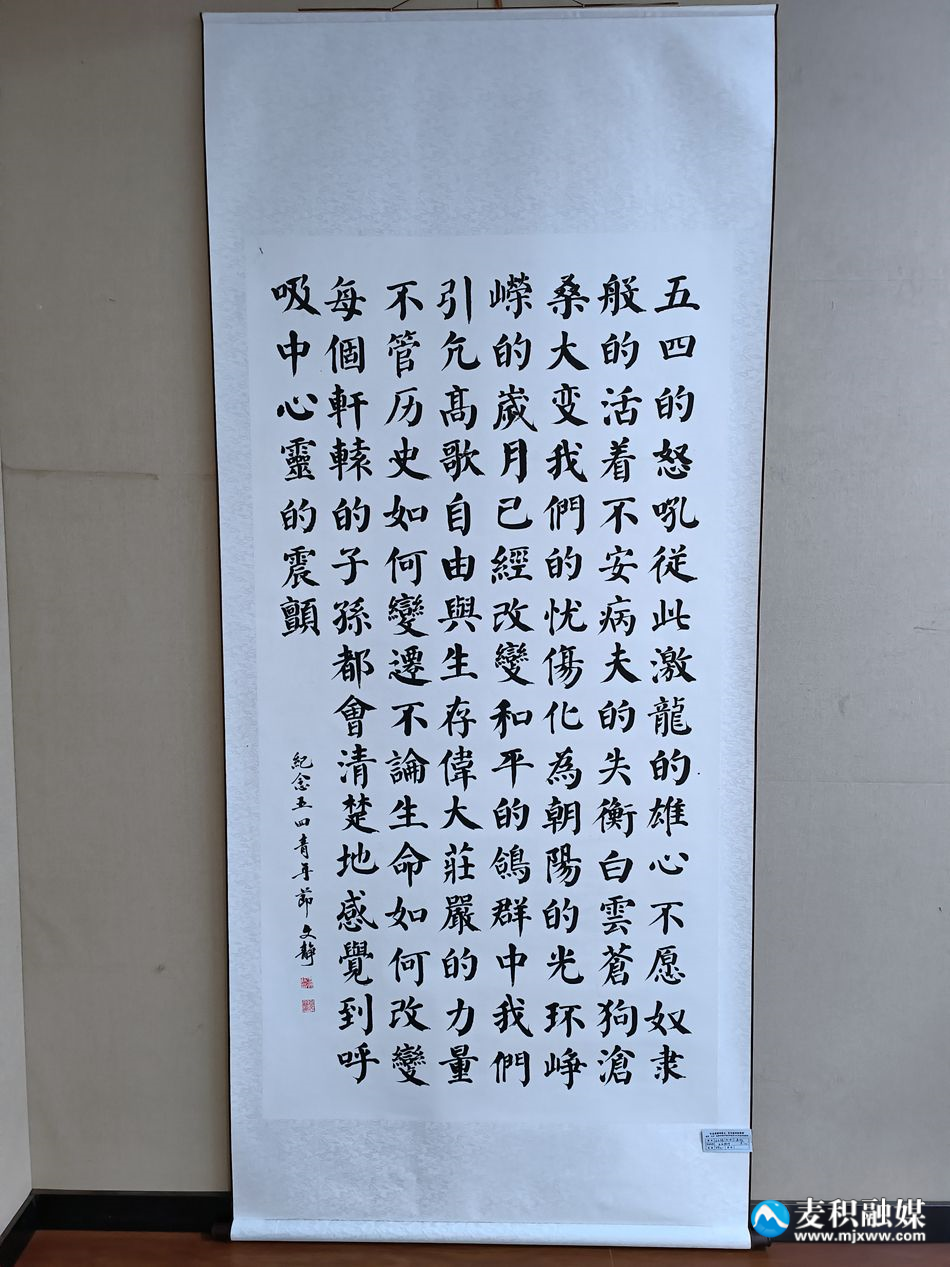 五四的怒吼從此激龍的雄心不愿奴隶
般的活着不安病夫的失衡白雲蒼狗滄
桑大变我們的忧傷化為朝陽的光环峥
嶸的歲月已經改變和平的鴿群中我們
引亢高歌自由與生存偉大莊嚴的力量
不管历史如何變遷不論生命如何改變
每個軒轅的子孫都會清楚地感覺到呼
吸中心靈的震顫
紀念五四青年節 文靜
麦积融媒
www.mjxww.com